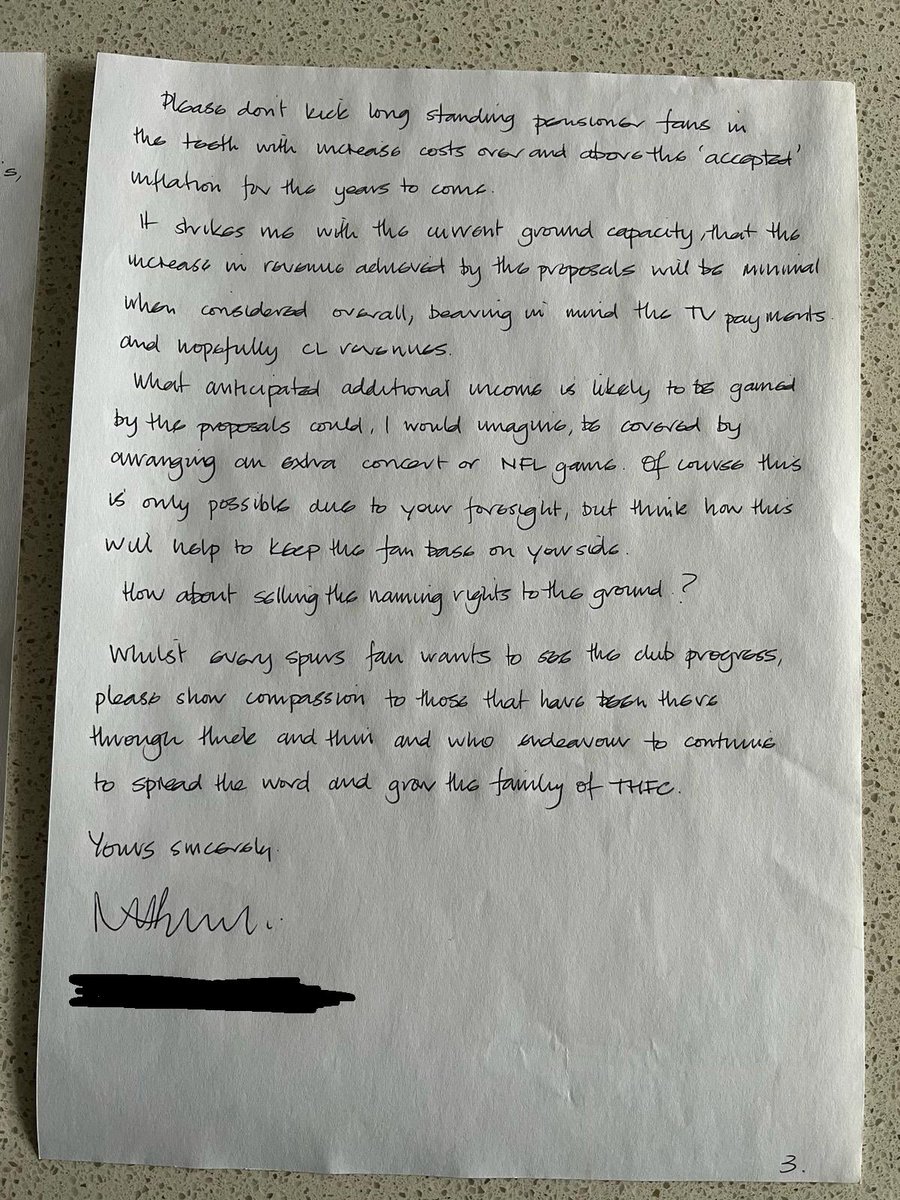 s,
Please don't kick long standing pensioner fans in
the teeth with increase costs over and above the 'accepted'
inflation for the years to come.
It strikes me with the current ground capacity, that the
increase in revenue achieved by the proposals will be minimal
when considered overall, bearing in mind the TV payments
and hopefully CL revenues.
What anticipated additional income is likely to be gained
by the proposals could, I would imagine, be covered by
arranging an extra concert or NFL game. Of course this
is only possible due to your foresight, but think how this
will help to keep the fan base on your side.
How about selling the naming rights to the ground?
Whilst every spurs fan wants to see the club progress,
please show compassion to those that have been there
through thick and thin and who endeavour to continue
to spread the word and grow the family of THFC.
Yours sincerely.
3.